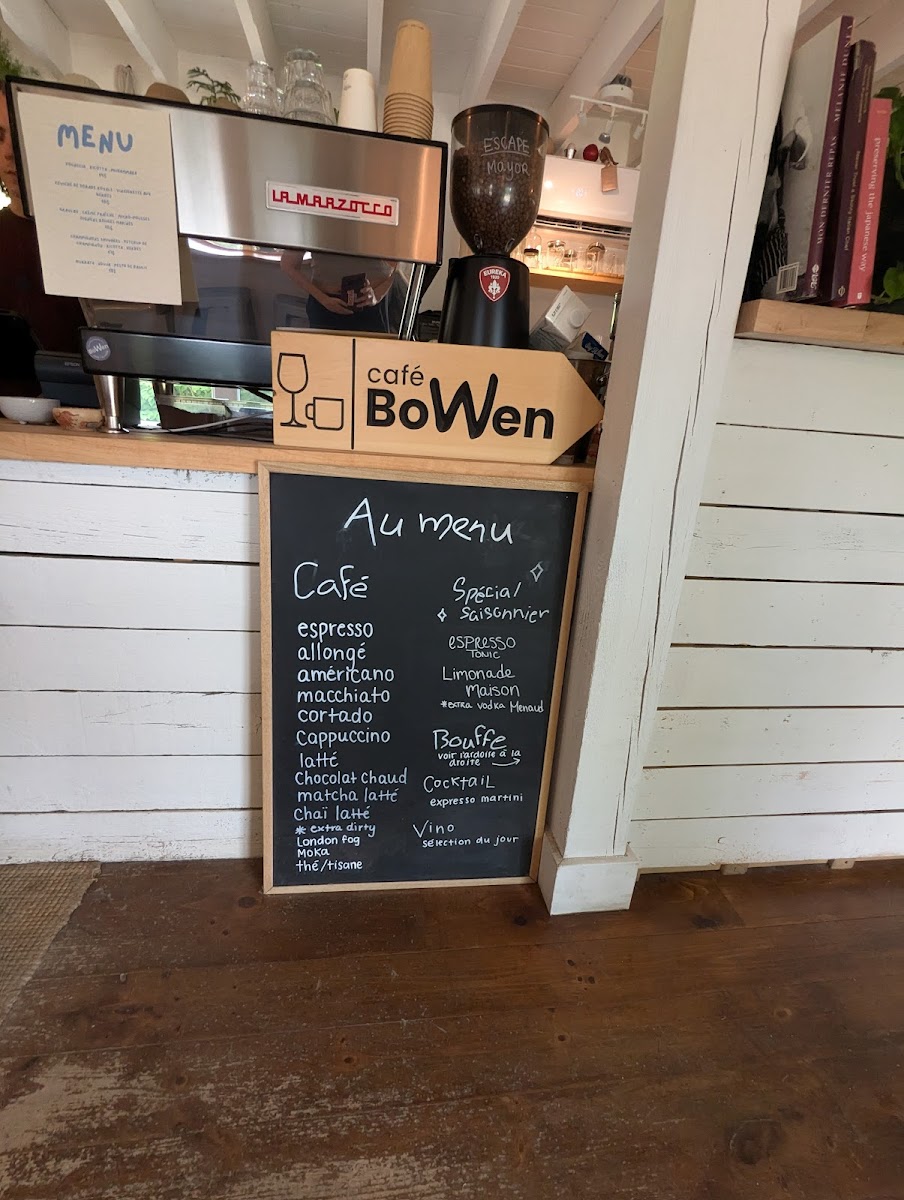 MENU
LA MARZOCCO
ESCAPE
MAYOR
EUREKA
BOWEN
café
BoWen
Au menu
Café
espresso
allongé
américano
macchiato
cortado
cappuccino
latté
Chocolat chaud
matcha latté
Chaï latté
* extra dirty
London fog
Moka
thé/tisane
Spécial
saisonnier
espresso
TONIC
Limonade
Maison
*EXTRA vodka Menaud
Bouffe
voir l'ardoise à la
droite
Cocktail
expresso martini
Vino
sélection du jour
MON DERNIER REPAS MELANIE DUNEA
preserving the Japanese way